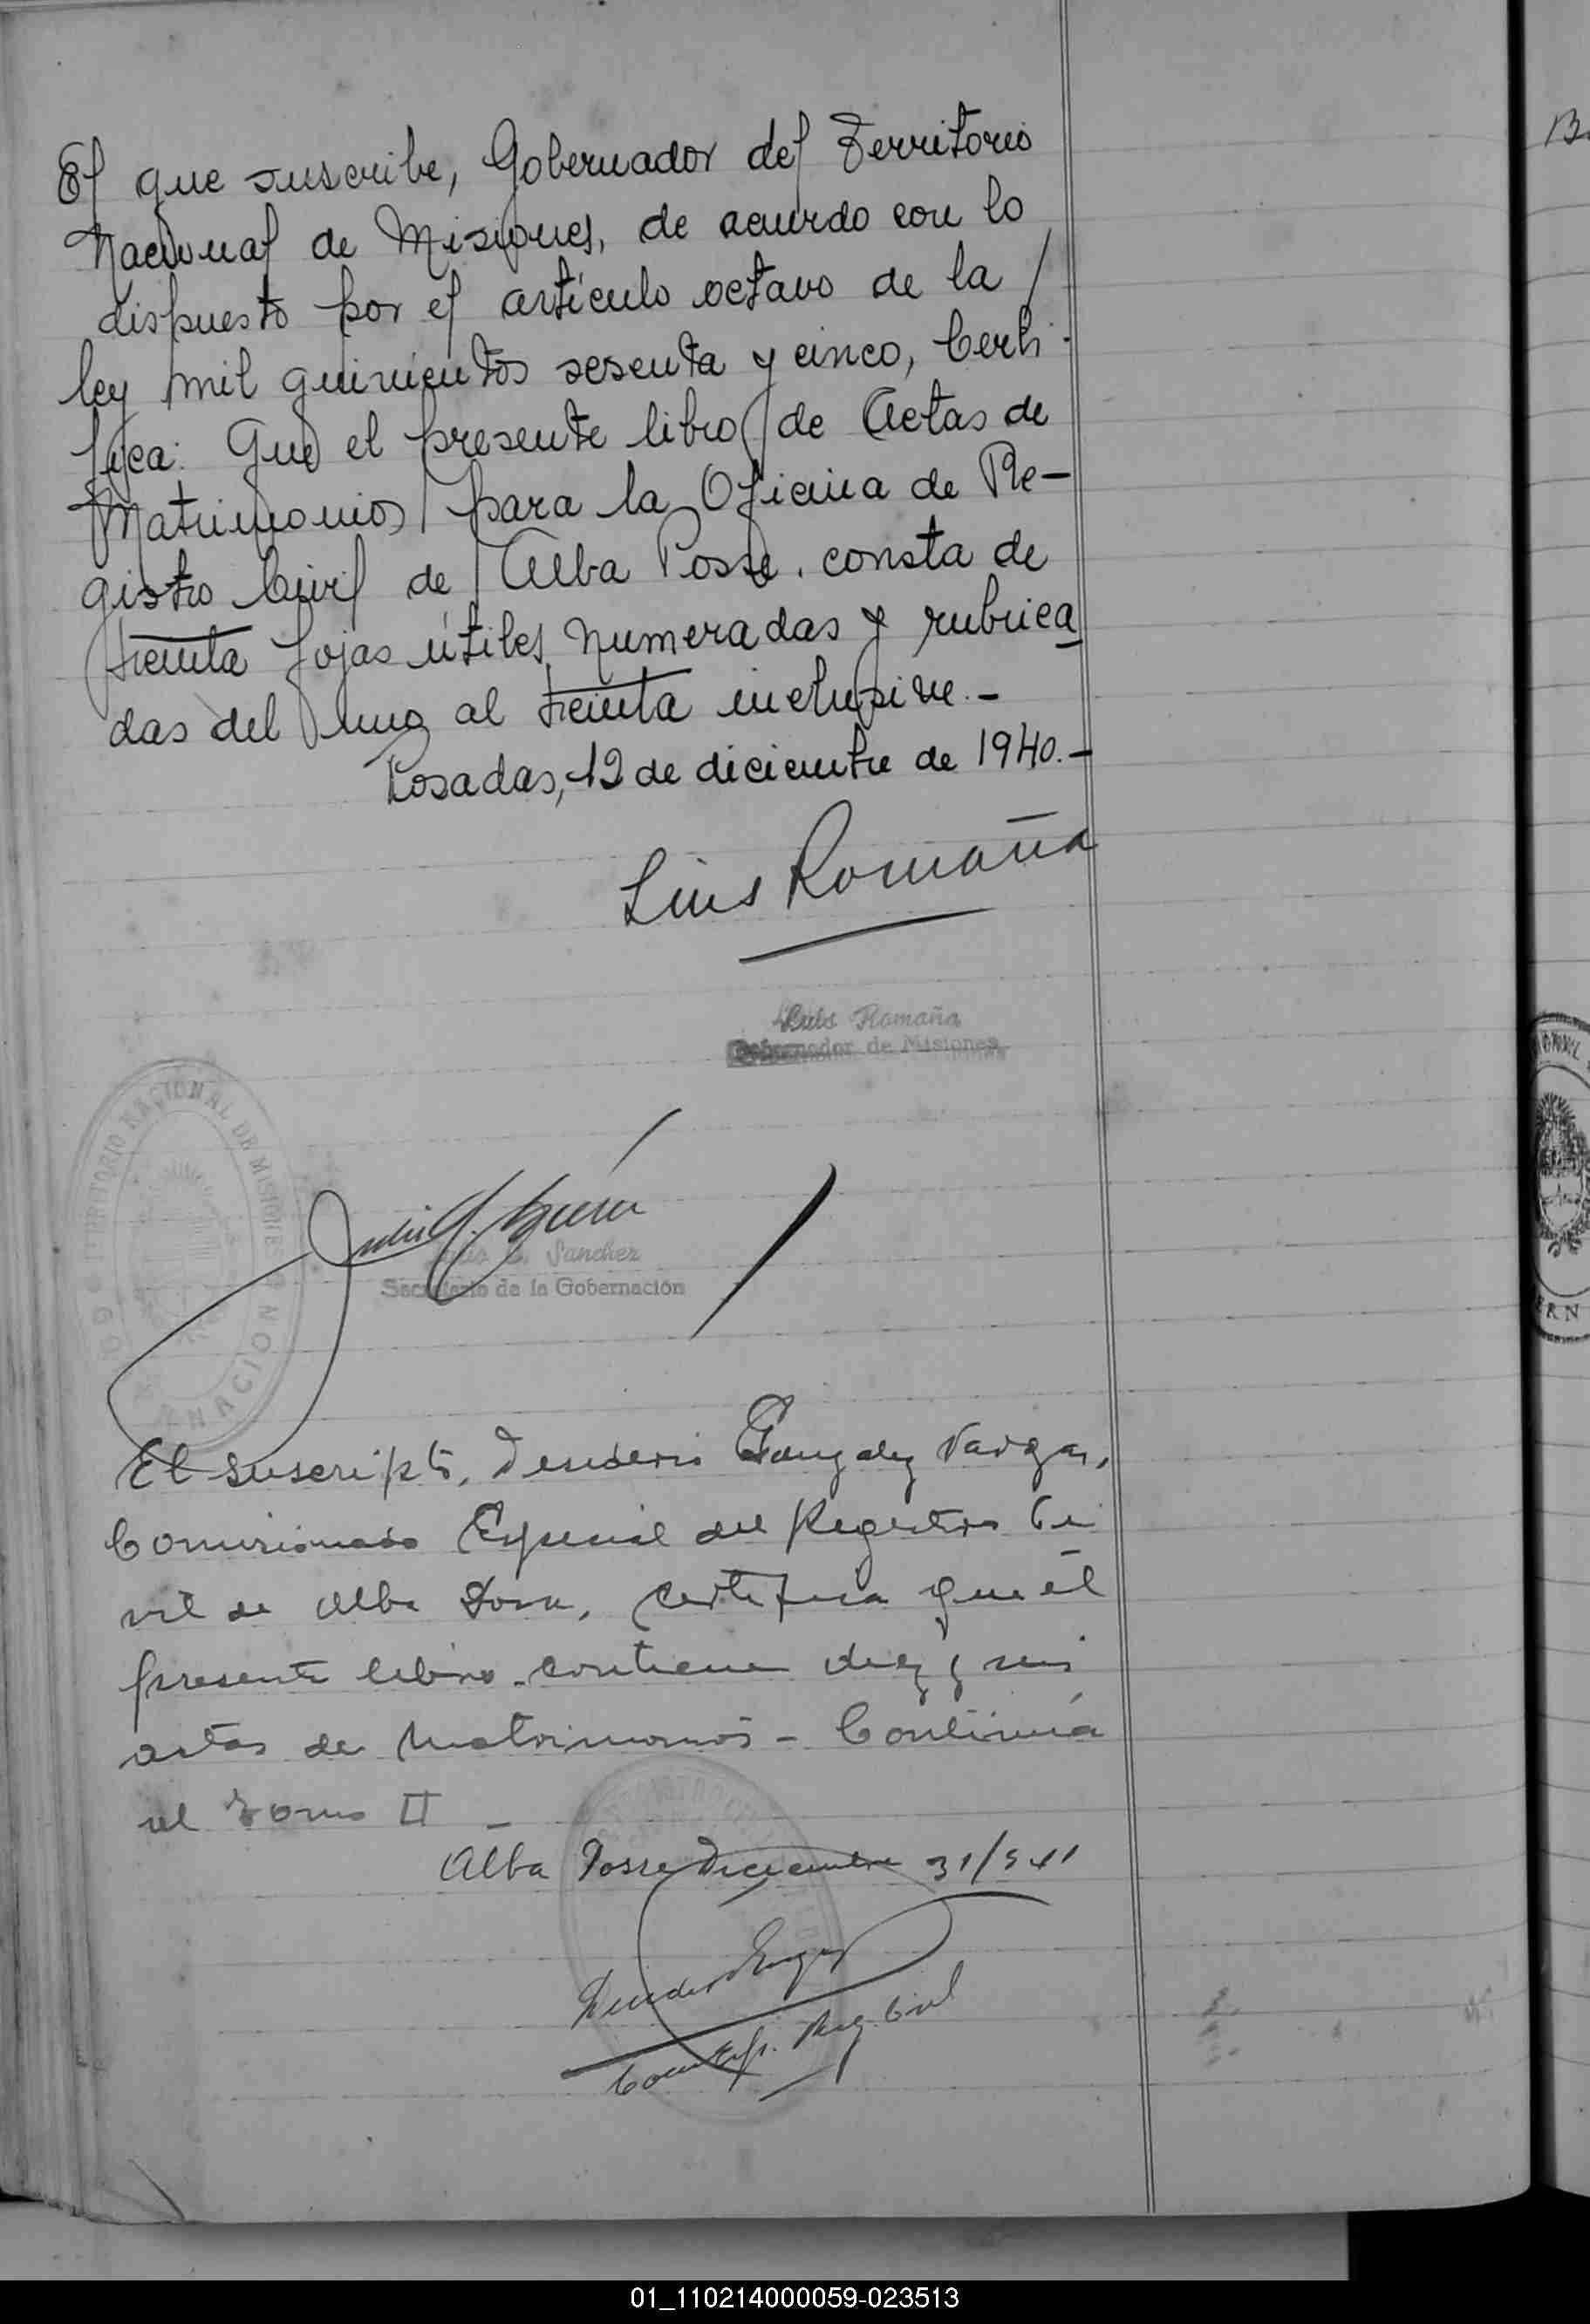 El que suscribe, Gobernador del Territorio
Nacional de Misiones, de acuerdo con lo
dispuesto por el artículo octavo de la /
ley mil quinientos sesenta y cinco, Certi-
fica: Que el presente libro de Actas de
Matrimonios para la Oficina de Re-
gistro Civil de Alba Posse, consta de
treinta fojas útiles numeradas y rubrica
das del uno al treinta inclusive.-
Posadas, 12 de diciembre de 1940.-
Luis Romaña
Luis Romaña
Gobernador de Misiones
TERRITORIO NACIONAL DE MISIONES
Sanchez
Secretario de la Gobernación
El suscripto, Desiderio Gonzalez Vargas,
Comisionado Especial del Registro Ci
vil de Alba Posse, certifica que el
presente libro contiene diez y seis
actas de Matrimonios - Continúa
el Tomo II -
Alba Posse Diciembre 31/941
Com. Esp. Reg. Civil
01_110214000059-023513